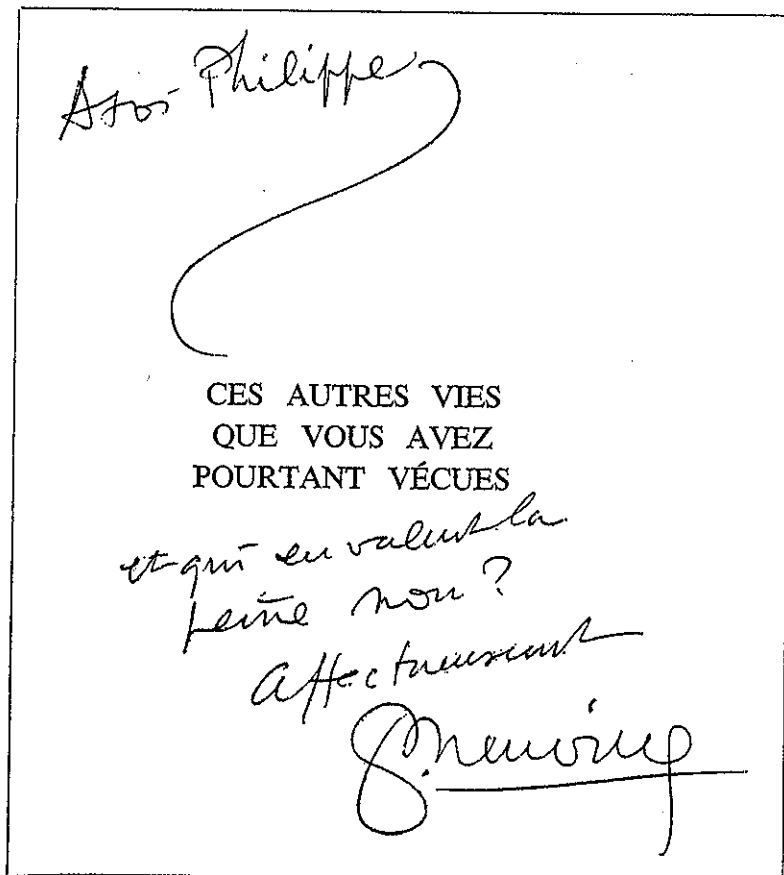 A toi Philippe
CES AUTRES VIES
QUE VOUS AVEZ
POURTANT VÉCUES
et qui en valent la
peine non ?
affectueusement